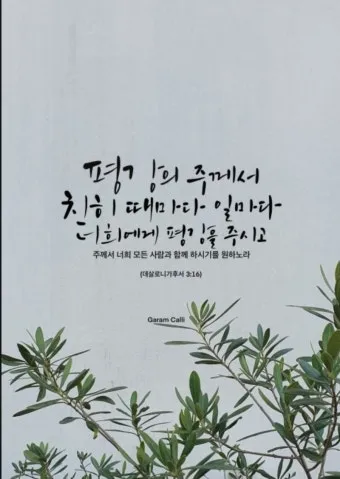 평강의 주께서
친히 때마다 일마다
너희에게 평강을 주시고
주께서 너희 모든 사람과 함께 하시기를 원하노라
(데살로니가후서 3:16)
Garam Calli